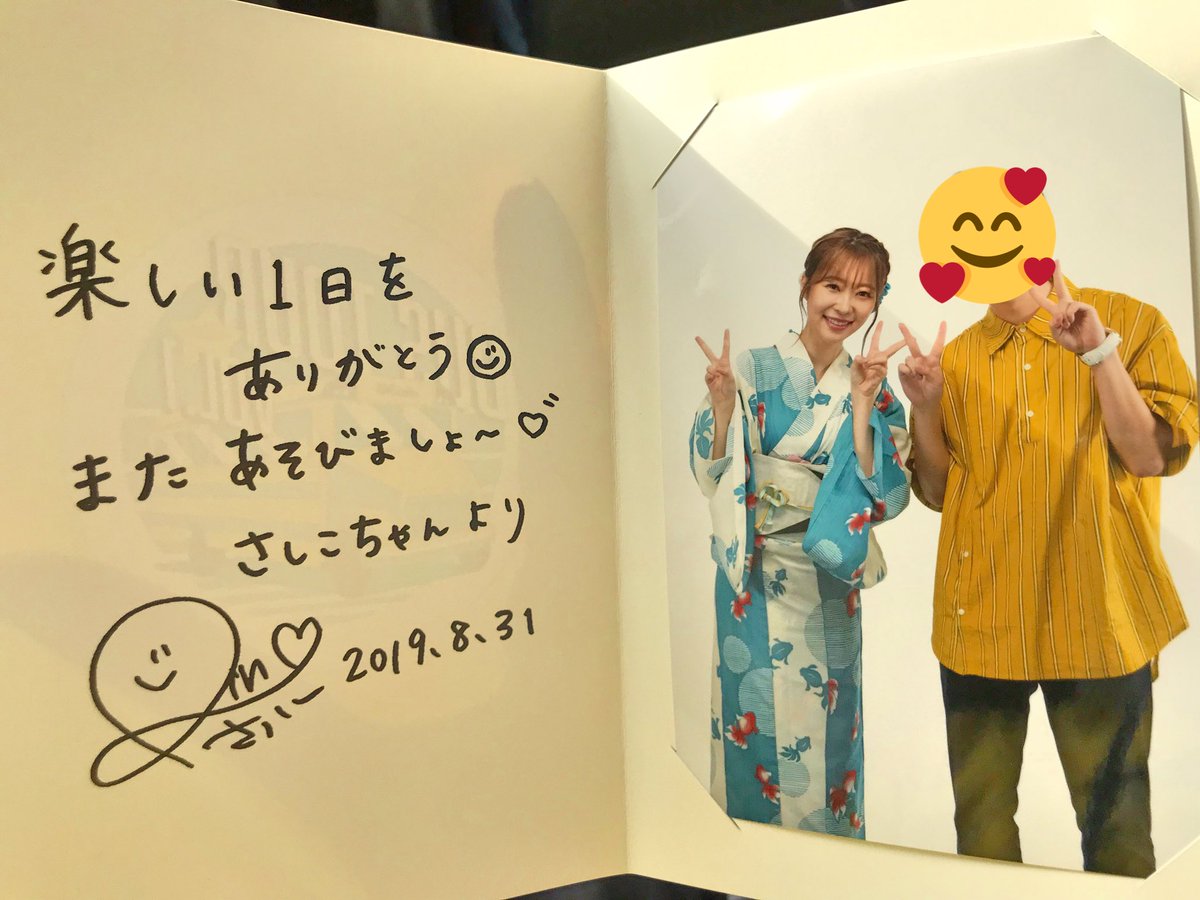 楽しい1日を
ありがとう
また あそびましょ〜♡
さしこちゃんより
2019.8.31